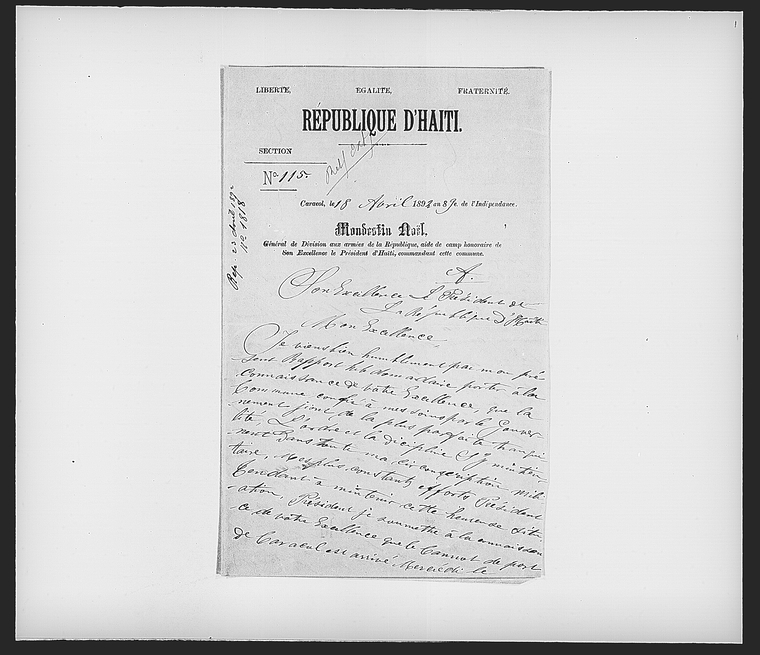 LIBERTÉ, EGALITE, FRATERNITÉ.
RÉPUBLIQUE D'HAITI.
SECTION
No 115.
Rep. 23 avril 1892
No 1818
Caracol, le 18 Avril 1892 an 89e. de l'Indépendance.
Mondestin Noël,
Général de Division aux armées de la République, aide de camp honoraire de
Son Excellence le Président d'Haïti, commandant cette commune.
A.
Son Excellence le Président de
La République d'Haïti
Mon Excellence,
Je viens bien humblement par mon pré
sent Rapport hebdomadaire porter à la
connaissance de votre Excellence, que la
Commune confié à mes soins par le Gouver
nement jouit de la plus parfaite tranqui
lité, L'ordre et la dicipline s'y mintien
nent dans toute ma circonscription mili
taire, Mes plus constants efforts Président
tendant a mintenir cette heureuse situ
ation, Président je soummette à la connaissan
ce de votre Excellence que le Cannot de port
de Caracol est arrivé Mercredi le